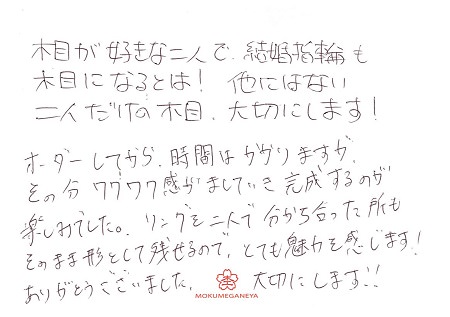 木目が好きな二人で、結婚指輪も
木目になるとは! 他にはない
二人だけの木目、大切にします!
オーダーしてから、時間はかかりますが、
その分ワクワク感がましていき完成するのが
楽しみでした。リングを二人で分かち合った所も
そのまま形として残せるので、とても魅力を感じます!
ありがとうございました。 大切にします!!
MOKUMEGANEYA